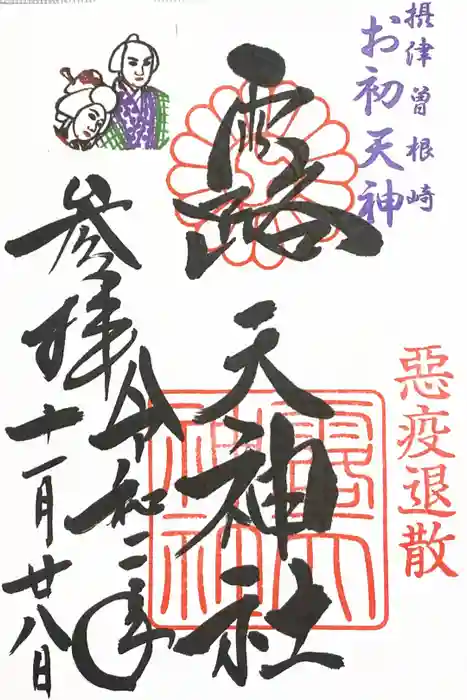 摂津曽根崎
お初天神
惡疫退散
露天神社
令和二年
参拝 十一月廿八日